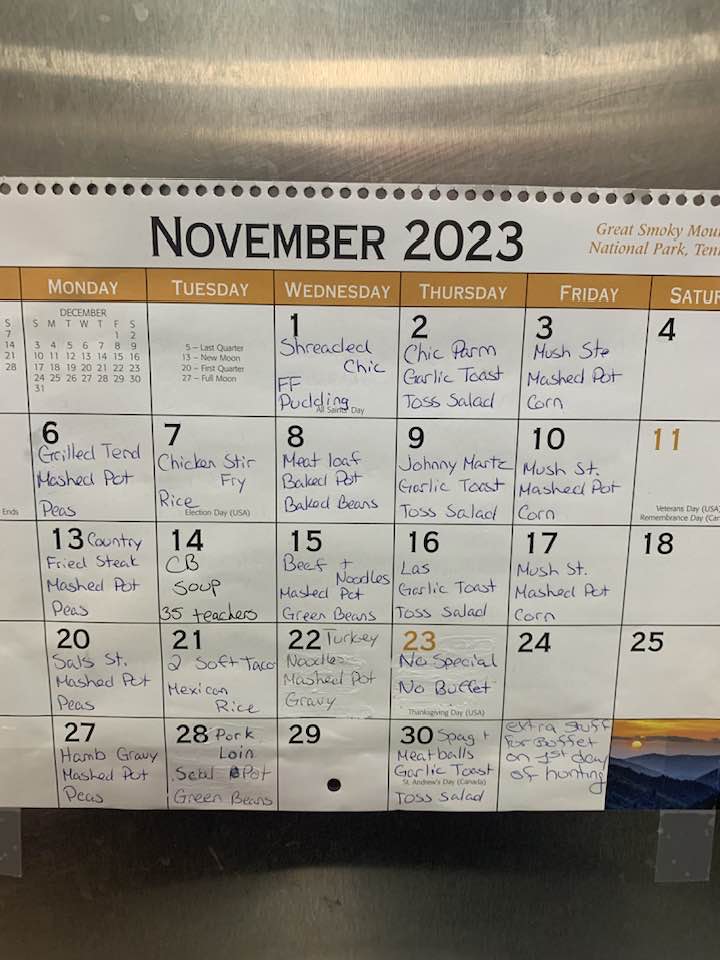 NOVEMBER 2023
Great Smoky Mou
National Park, Ten
MONDAY TUESDAY WEDNESDAY THURSDAY FRIDAY SATUR
S
7
14
21
28
DECEMBER
S M T W T F S
1 2
3 4 5 6 7 8 9
10 11 12 13 14 15 16
17 18 19 20 21 22 23
24 25 26 27 28 29 30
31
5 – Last Quarter
13 – New Moon
20 – First Quarter
27 – Full Moon
1
Shreaded
Chic
FF
Pudding
All Saints' Day
2
Chic Parm
Garlic Toast
Toss Salad
3
Mush Ste
Mashed Pot
Corn
4
Ends
6
Grilled Tend
Mashed Pot
Peas
7
Chicken Stir
Fry
Rice
Election Day (USA)
8
Meat loaf
Baked Pot
Baked Beans
9
Johnny Martz
Garlic Toast
Toss Salad
10
Mush St.
Mashed Pot
Corn
11
Veterans Day (USA)
Remembrance Day (Ca
13 Country
Fried Steak
Mashed Pot
Peas
14
CB
Soup
35 teachers
15
Beef +
Noodles
Mashed Pot
Green Beans
16
Las
Garlic Toast
Toss Salad
17
Mush St.
Mashed Pot
Corn
18
20
Sals St.
Mashed Pot
Peas
21
2 Soft Taco
Mexican
Rice
22 Turkey
Noodles
Mashed Pot
Gravy
23
No Special
No Buffet
Thanksgiving Day (USA)
24
25
27
Hamb Gravy
Mashed Pot
Peas
28 Pork
Loin
Pot
Green Beans
29
30 Spag +
Meatballs
Garlic Toast
St. Andrew's Day (Canada)
Toss Salad
extra stuff
for Buffet
on 1st day
of hunting